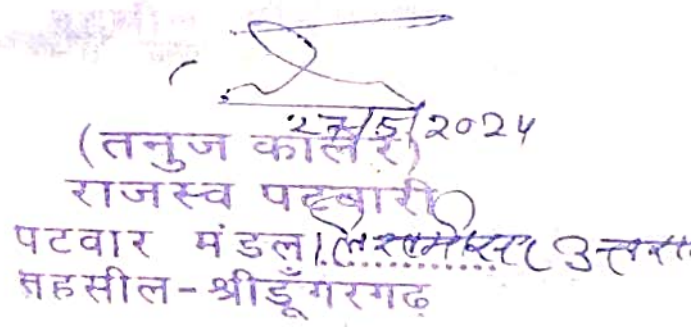 27/5/2024
(तनुज कालेर)
राजस्व पटवारी
पटवार मंडल लिखमीसर उत्तरादा
तहसील-श्रीडूँगरगढ